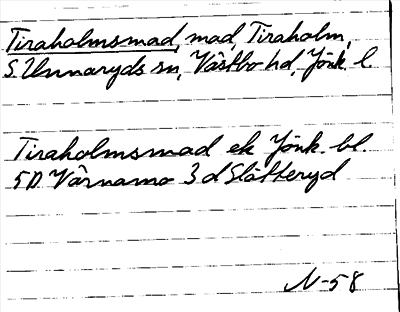 Tiraholmsmad, mad, Tiraholm,
S. Unnaryds sn, Västbo hd, Jönk. l.
Tiraholmsmad ek Jönk. bl.
5D Värnamo 3 d Slätteryd
N-58